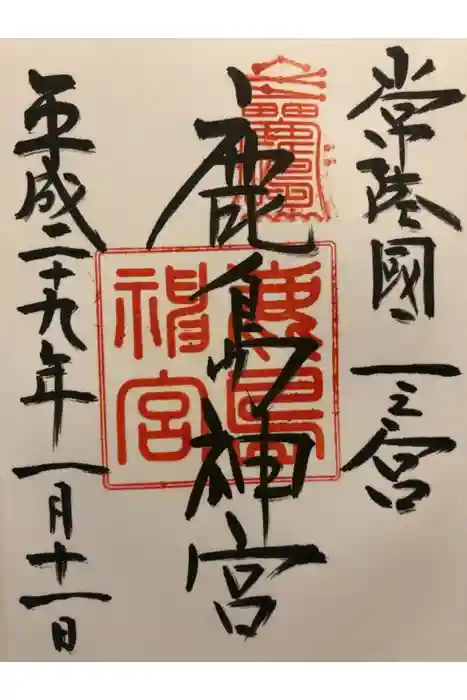 常陸國一之宮
鹿島神宮
平成二十九年一月十一日
鹿島
神宮